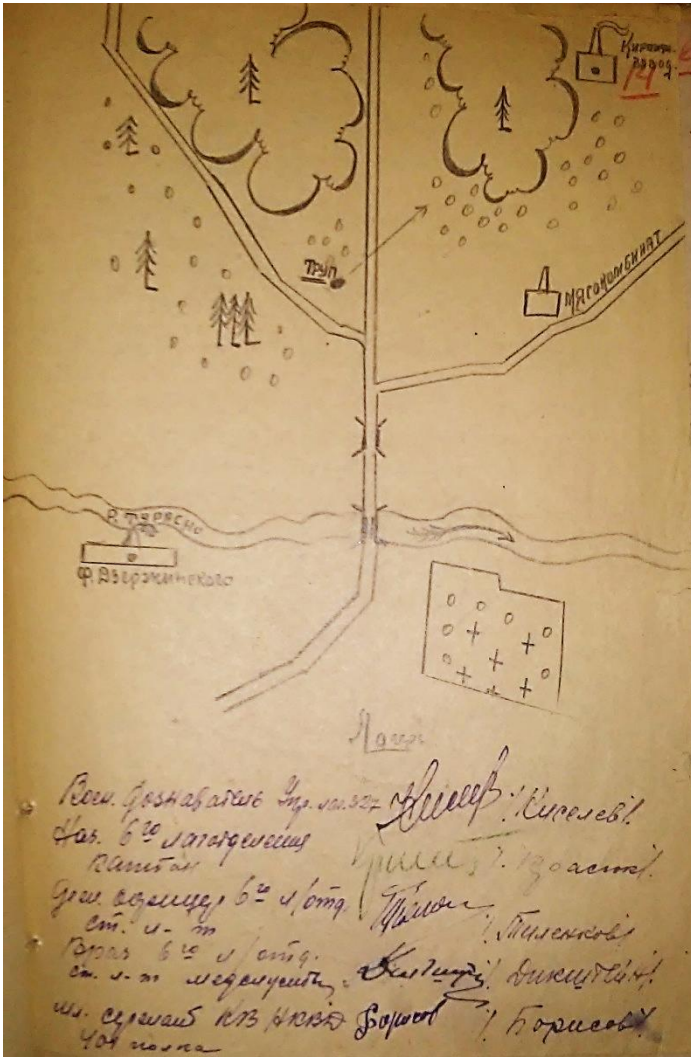 Кирпич.
завод.
14
Труп
Мясокомбинат
р. Турясно
ф. Дзержинского
Воен. дознаватель Упр. лаг. 327 /Киселев/.
Нач. 6го лаготделения
капитан
Деж. офицер 6го л/отд.
ст. л-т /Тиленков/
Врач 6го л/отд.
ст. л-т медслужбы
мл. сержант КВ НКВД /Борисов/
401 полка